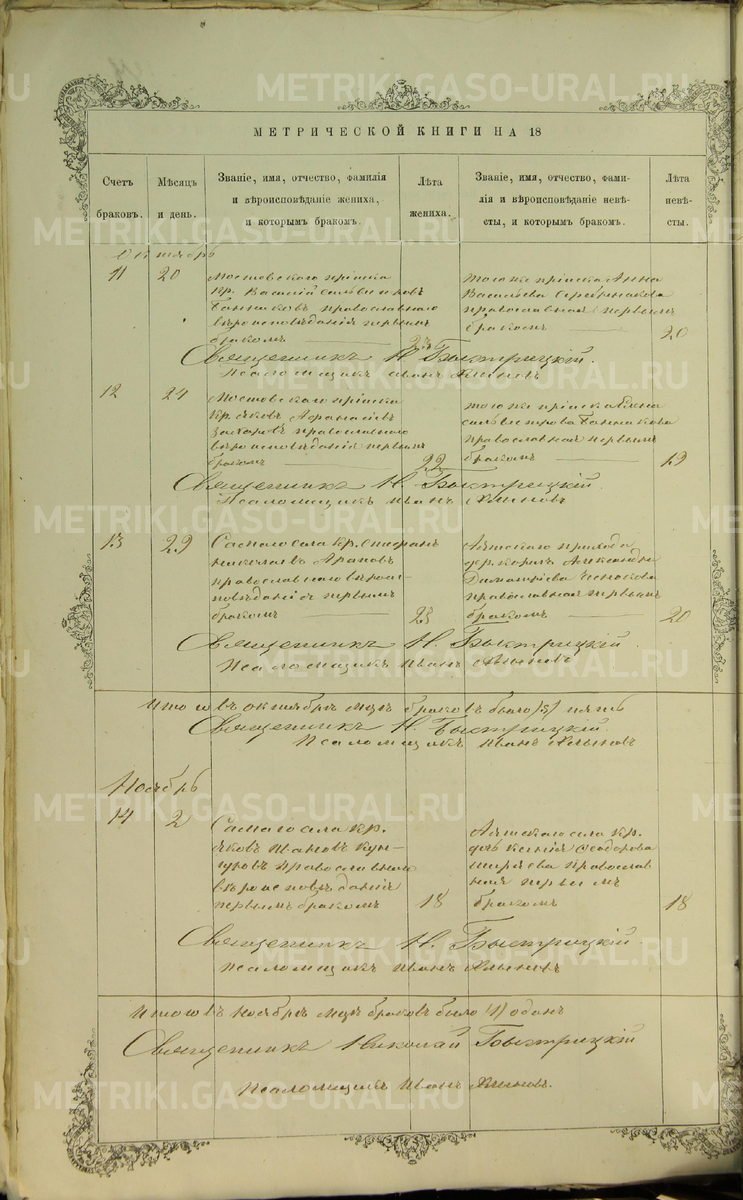 МЕТРИЧЕСКОЙ КНИГИ НА 18
Счетъ браковъ.
Мѣсяцъ и день.
Званіе, имя, отчество, фамилія
и вѣроисповѣданіе жениха,
и которымъ бракомъ.
Лѣта жениха.
Званіе, имя, отчество, фами-
лія и вѣроисповѣданіе невѣ-
сты, и которымъ бракомъ.
Лѣта невѣ-
сты.
Октябрь
11 20
Мостовскаго пріиска
кр. Василій Сильвестровъ
Банниковъ православнаго
вѣроисповѣданія первымъ
бракомъ 23
того же пріиска Анна
Васильева Серебрякова
православная первымъ
бракомъ 20
Священникъ Н. Быстрицкій.
Псаломщикъ Иванъ
12 24
Мостовскаго пріиска
кр. Яковъ Афанасіевъ
Захаровъ православнаго
вѣроисповѣданія первымъ
бракомъ 22
того же пріиска
Сильвестрова Банникова
православная первымъ
бракомъ 19
Священникъ Н. Быстрицкій.
Псаломщикъ Иванъ
13 29
Самаго села кр.
Николаевъ Араповъ
православнаго вѣрои-
повѣданія первымъ
бракомъ 23
Аятскаго прихода
дер. Александра
православная первымъ
бракомъ 20
Священникъ Н. Быстрицкій.
Псаломщикъ Иванъ
Итого въ октябрѣ мцѣ браковъ было /5/ пять
Священникъ Н. Быстрицкій.
Псаломщикъ Иванъ
Ноябрь
14 2
Самаго села кр.
Яковъ Ивановъ Кун-
гуровъ православнаго
вѣроисповѣданія
первымъ бракомъ 18
Аятскаго села кр.
дочь Ксенія Феодорова
Ширяева православ-
ная первымъ
бракомъ 18
Священникъ Н. Быстрицкій.
Псаломщикъ Иванъ
Итого въ ноябрѣ мцѣ браковъ было /1/ одинъ
Священникъ Николай Быстрицкій
Псаломщикъ Иванъ
METRIKI.GASO-URAL.RU